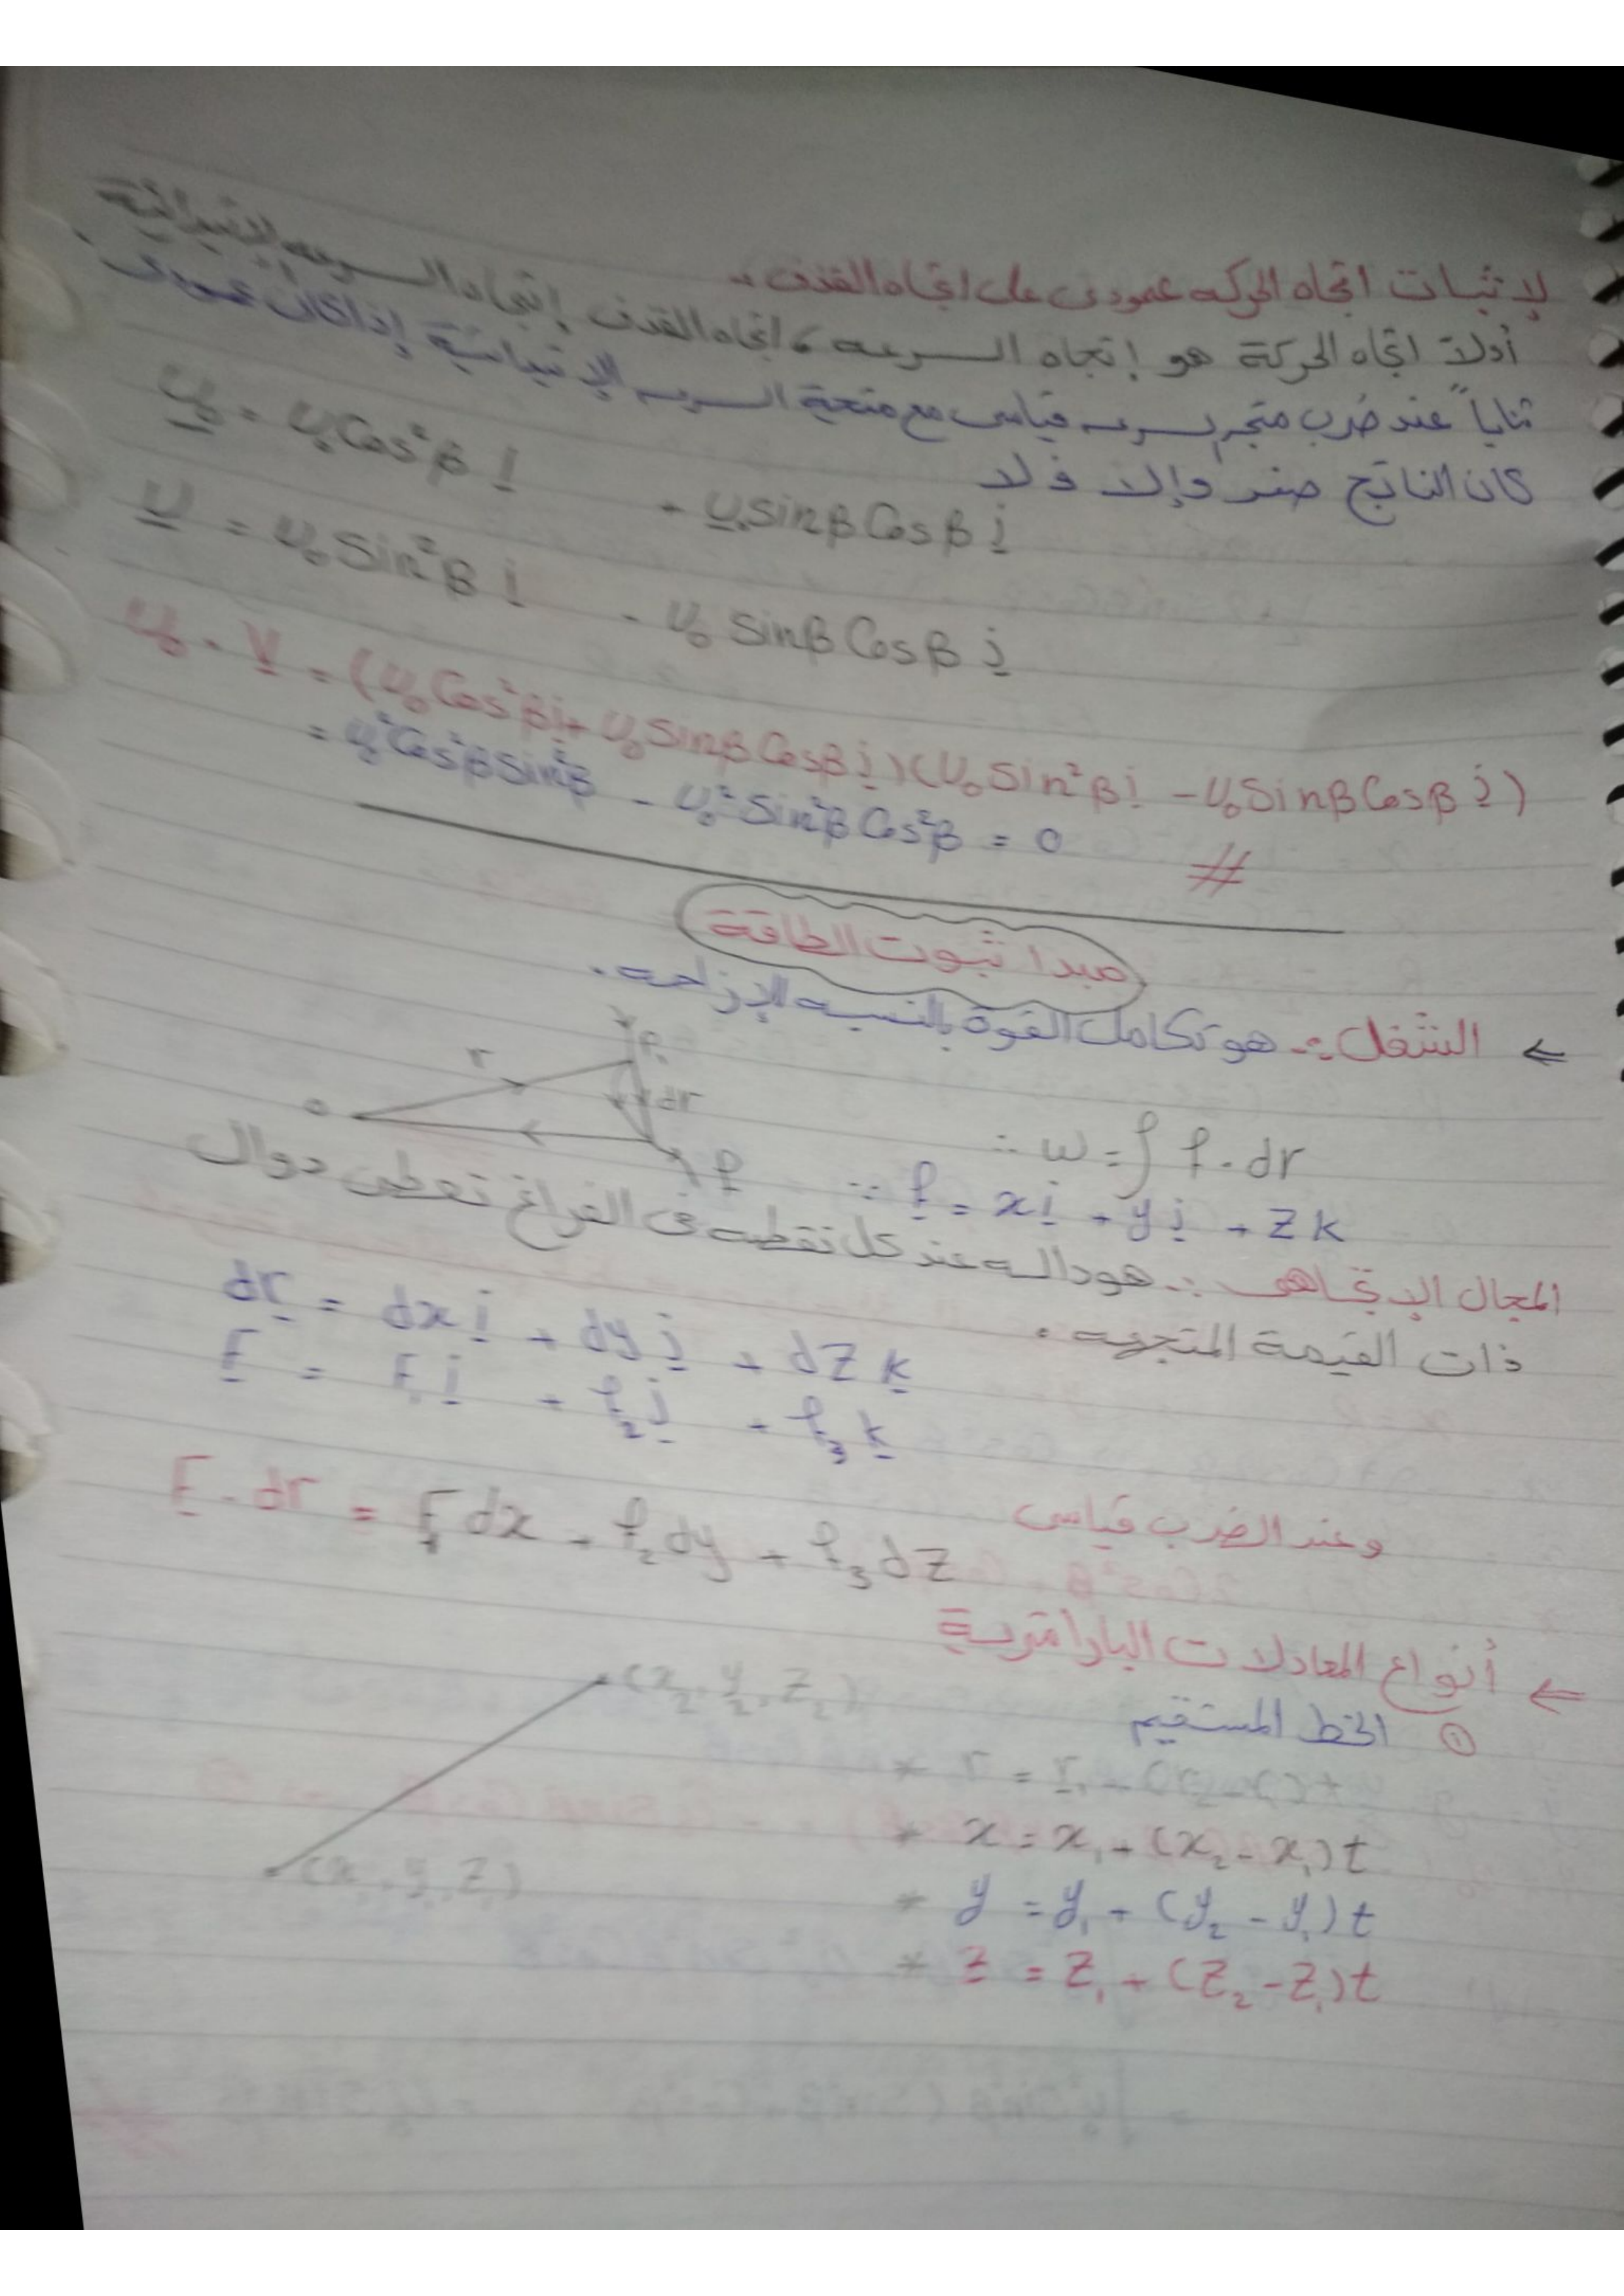 لإثبات اتجاه الحركه عمودى على اتجاه القذف :-
أولاً اتجاه الحركة هو إتجاه السرعه ، اتجاه القذف إتجاه السرعه الإبتدائية
ثانياً عند ضرب متجه سرعه قياسى مع متجة السرعه الإبتدائية إذا كان عمودى
كان الناتج صفر وإلا فلا
U₀ = U₀Cos²β i + U₀SinβCosβ j
U = U₀Sin²β i - U₀ SinβCosβ j
U₀ . V = (U₀Cos²βi + U₀SinβCosβ j)(U₀Sin²βi - U₀SinβCosβ j)
= U₀²Cos²βSin²β - U₀²Sin²βCos²β = 0 #
مبدا ثبوت الطاقة
⇐ الشغل :- هو تكامل القوة بالنسبه للإزاحه .
r P₁ dr o P
∴ w = ∫ f . dr
∵ f = xi + yj + zk
المجال الإتجاهى :- هو داله عند كل نقطه فى الفراغ تعطى دوال
ذات القيمة المتجهه .
dr = dx i + dy j + dz k
F = F₁i + f₂j + f₃k
وعند الضرب قياسى
F . dr = F₁dx + f₂dy + f₃dz
⇐ أنواع المعادلات البارامترية
① الخط المستقيم
(x₂, y₂, z₂)
* r = r₁ + (r₂ - r₁)t
* x = x₁ + (x₂ - x₁)t
(x₁, y₁, z₁)
* y = y₁ + (y₂ - y₁)t
* z = z₁ + (z₂ - z₁)t